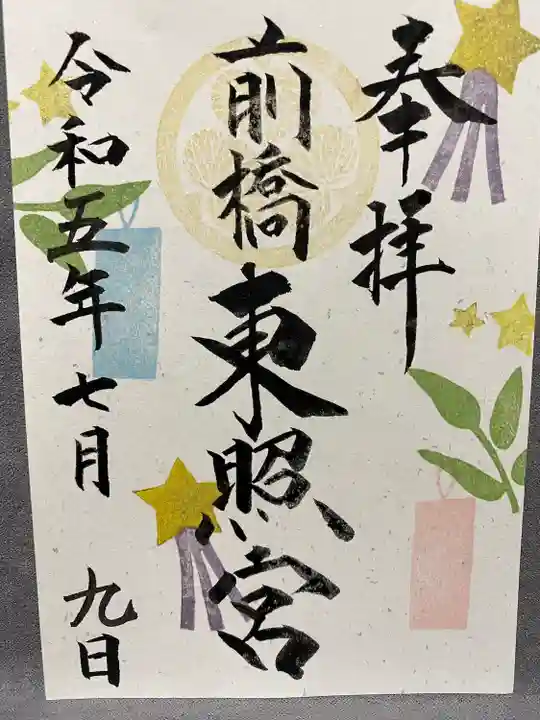 奉拝
前橋東照宮
令和五年七月九日